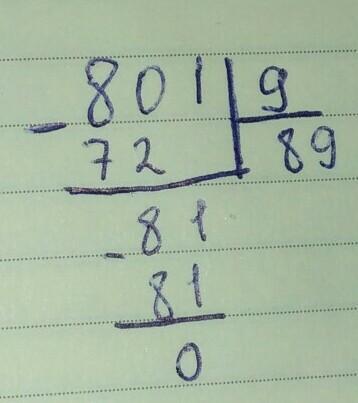 - 801 | 9
72 | 89
- 81
81
0